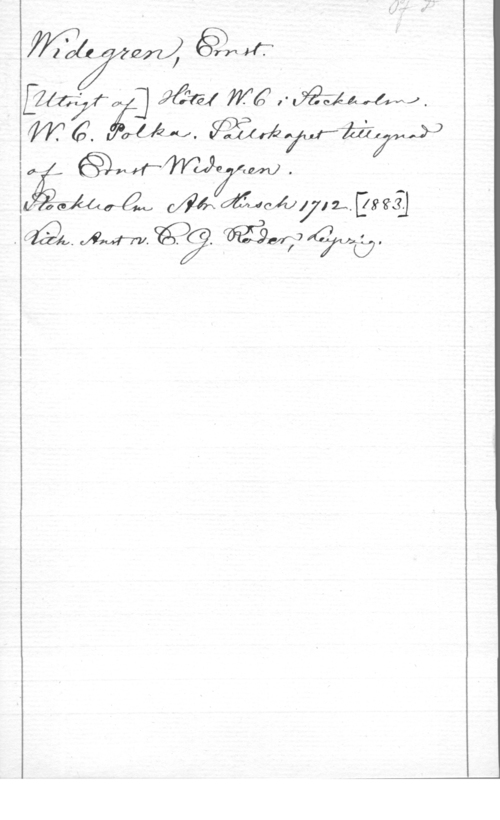 Widegren, Ernst.
[Utsigt af] Hôtel W. 6 i Stockholm.
W. 6. Polka. Sällskapet tillegnad
af Ernst Widegren.
Stockholm Abr. Hirsch 1712. [1883]
Lith. Anst v. C. G. Röder, Leipzig.